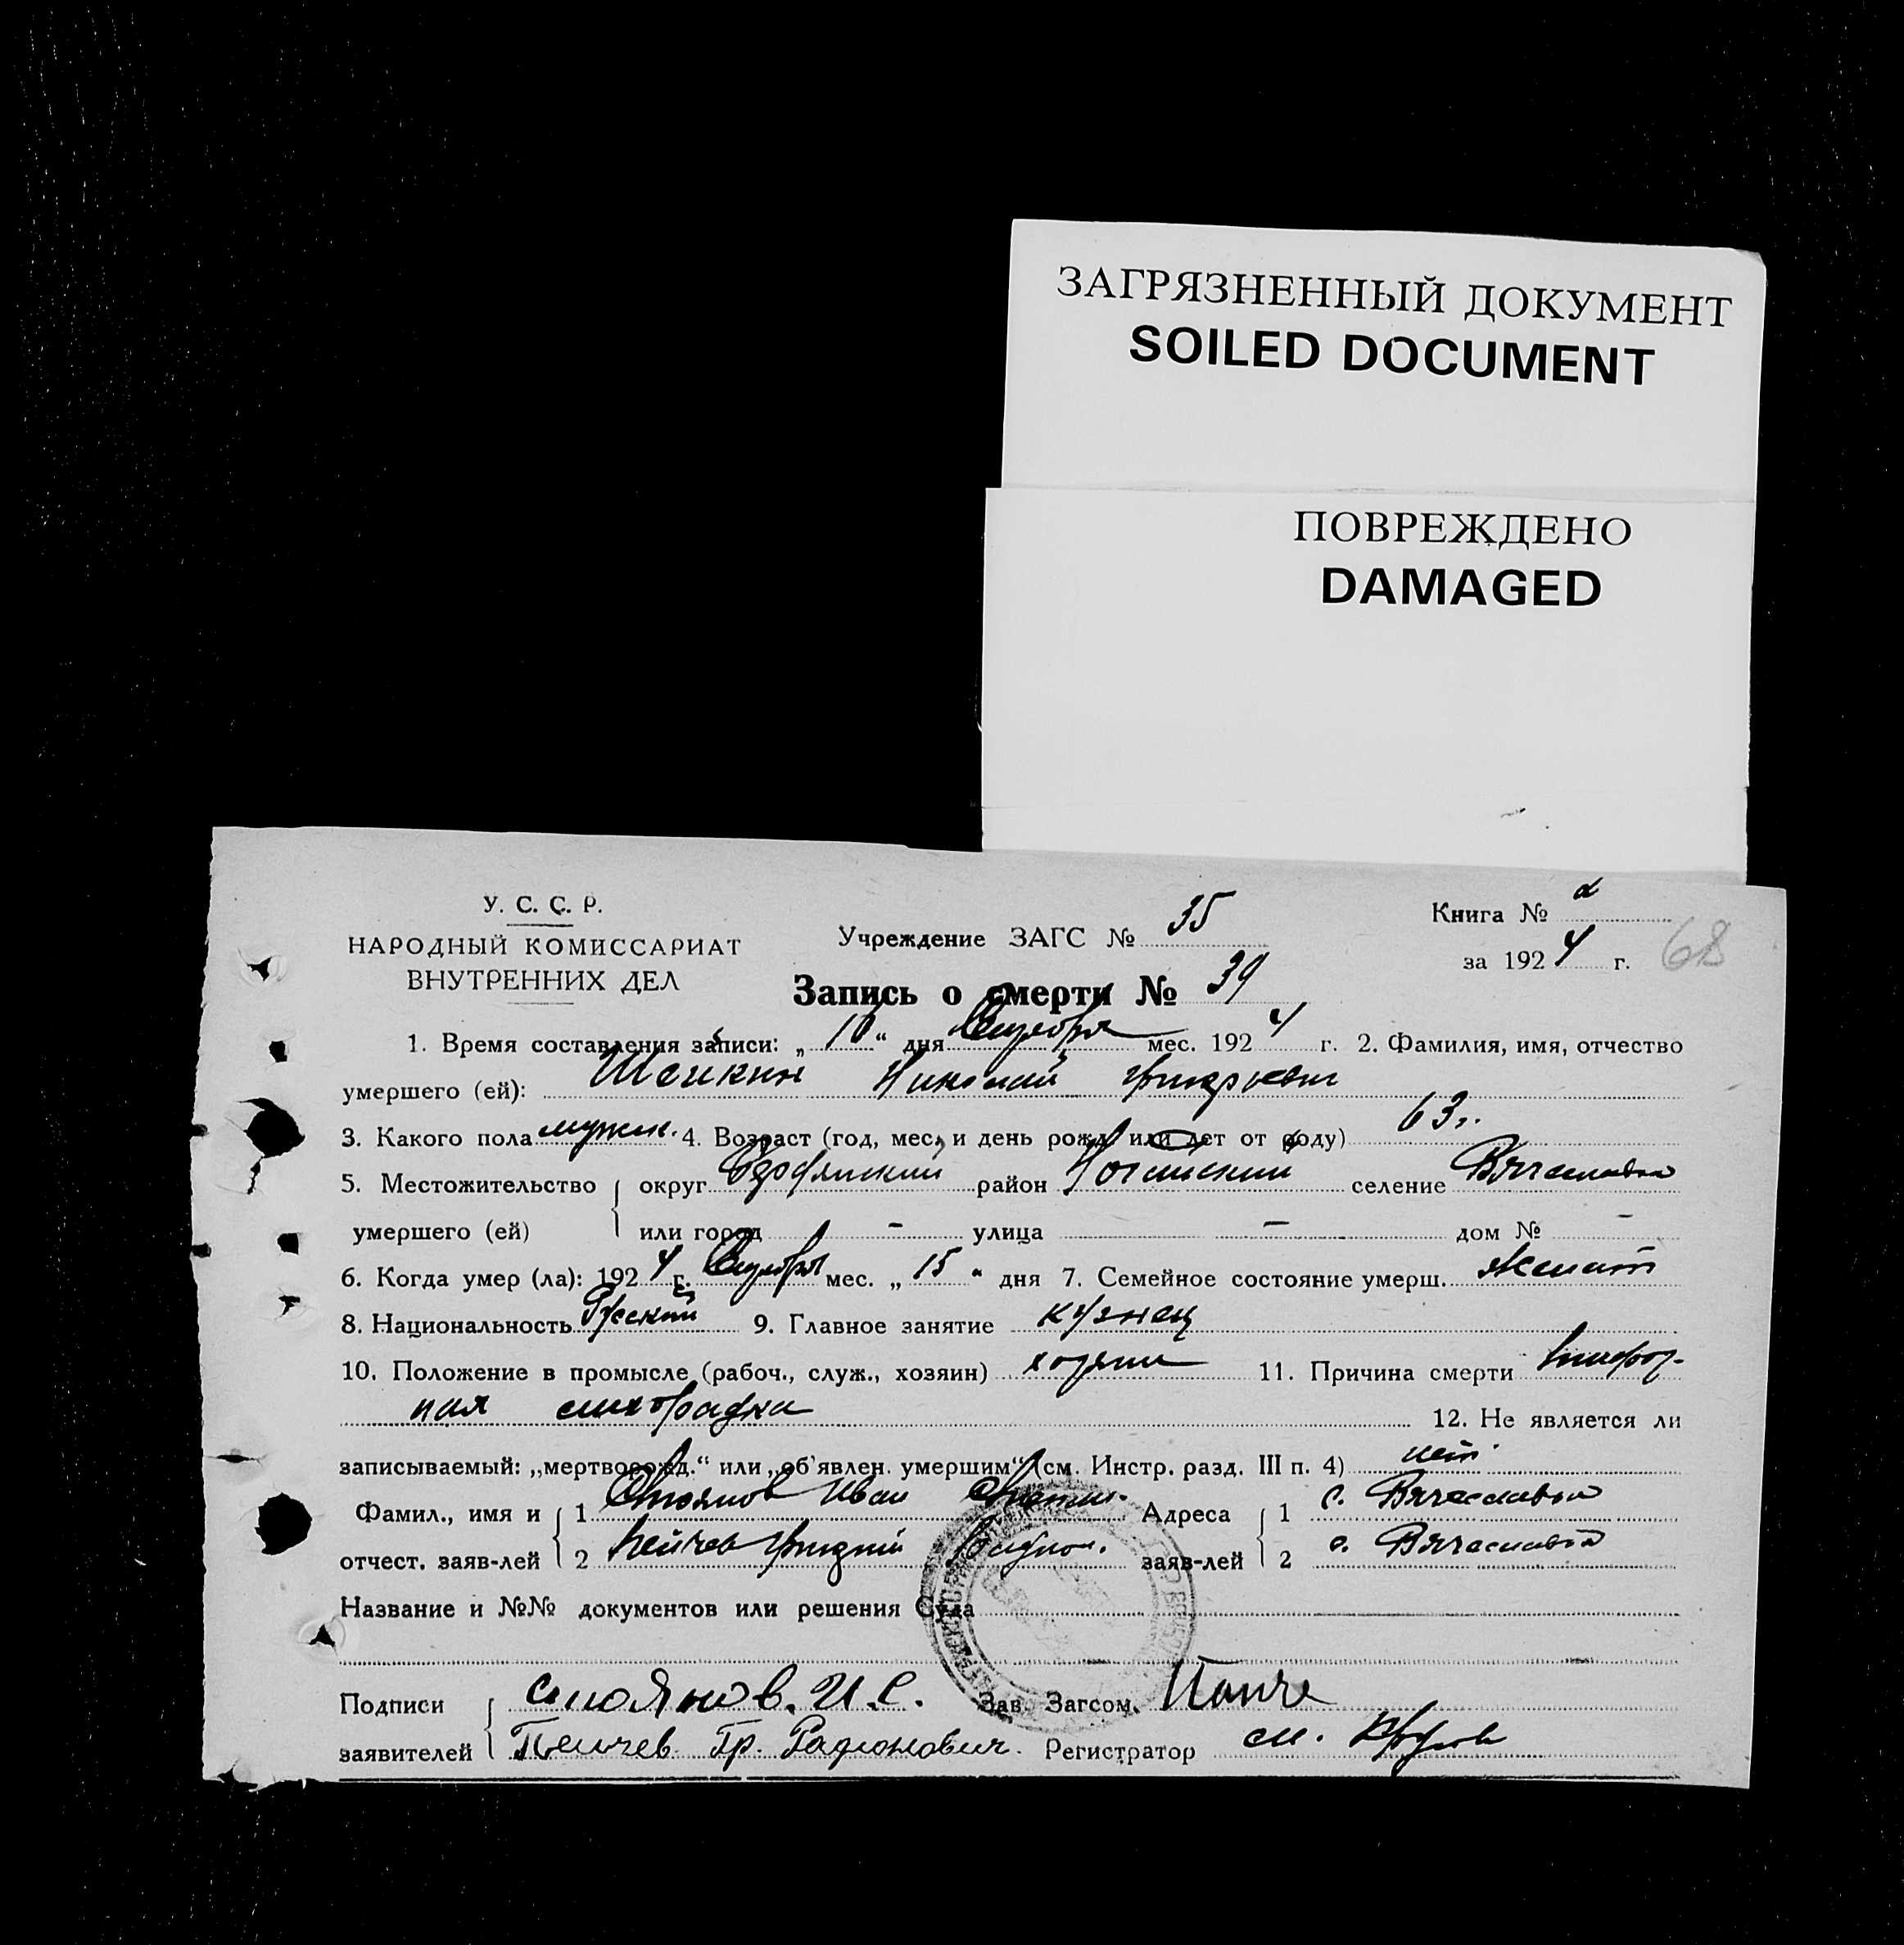 ЗАГРЯЗНЕННЫЙ ДОКУМЕНТ
SOILED DOCUMENT
ПОВРЕЖДЕНО
DAMAGED
У. С. С. Р.
НАРОДНЫЙ КОМИССАРИАТ
ВНУТРЕННИХ ДЕЛ
Учреждение ЗАГС № 35
Книга №
за 1924 г. 68
Запись о смерти № 39
1. Время составления записи: „16“ дня мес. 1924 г. 2. Фамилия, имя, отчество
умершего (ей): Николай
3. Какого пола мужск. 4. Возраст (год, мес., и день рожд. или лет от роду) 63 г.
5. Местожительство округ район Ногайский селение Вячеславка
умершего (ей) или город - улица - дом № -
6. Когда умер (ла): 1924 г. мес. „15“ дня 7. Семейное состояние умерш. женат
8. Национальность Русский 9. Главное занятие кузнец
10. Положение в промысле (рабоч., служ., хозяин) хозяин 11. Причина смерти
ная лихорадка 12. Не является ли
записываемый: „мертворожд.“ или „об'явлен. умершим“ (см. Инстр. разд. III п. 4) нет
Фамил., имя и 1 Стоянов Иван Адреса 1 с. Вячеславка
отчест. заяв-лей 2 Пейчев заяв-лей 2 с. Вячеславка
Название и №№ документов или решения Суда
Подписи Стоянов. И. С. Зав. Загсом.
заявителей Пейчев Гр. Радионович. Регистратор